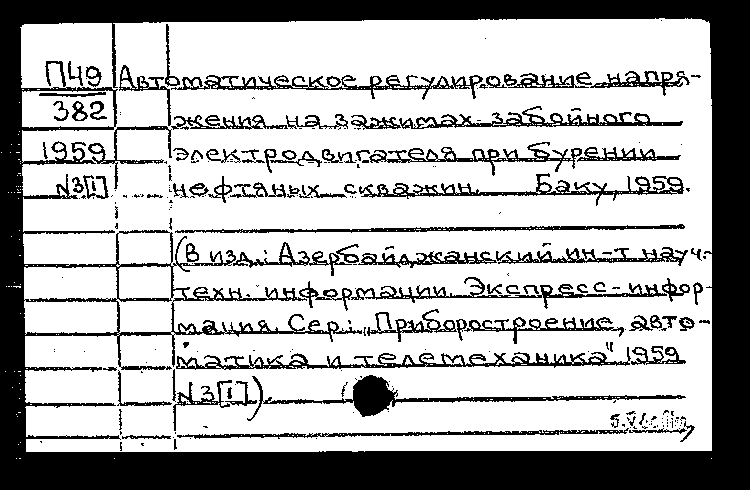 П49 Автоматическое регулирование напря-
382 жения на зажимах забойного
1959 электродвигателя при бурении
N3[I] нефтяных скважин. Баку, 1959.
(В изд.: Азербайджанский ин-т науч.-
техн. информации. Экспресс-инфор-
мация. Сер.: „Приборостроение, авто-
матика и телемеханика" 1959
N3[I]).